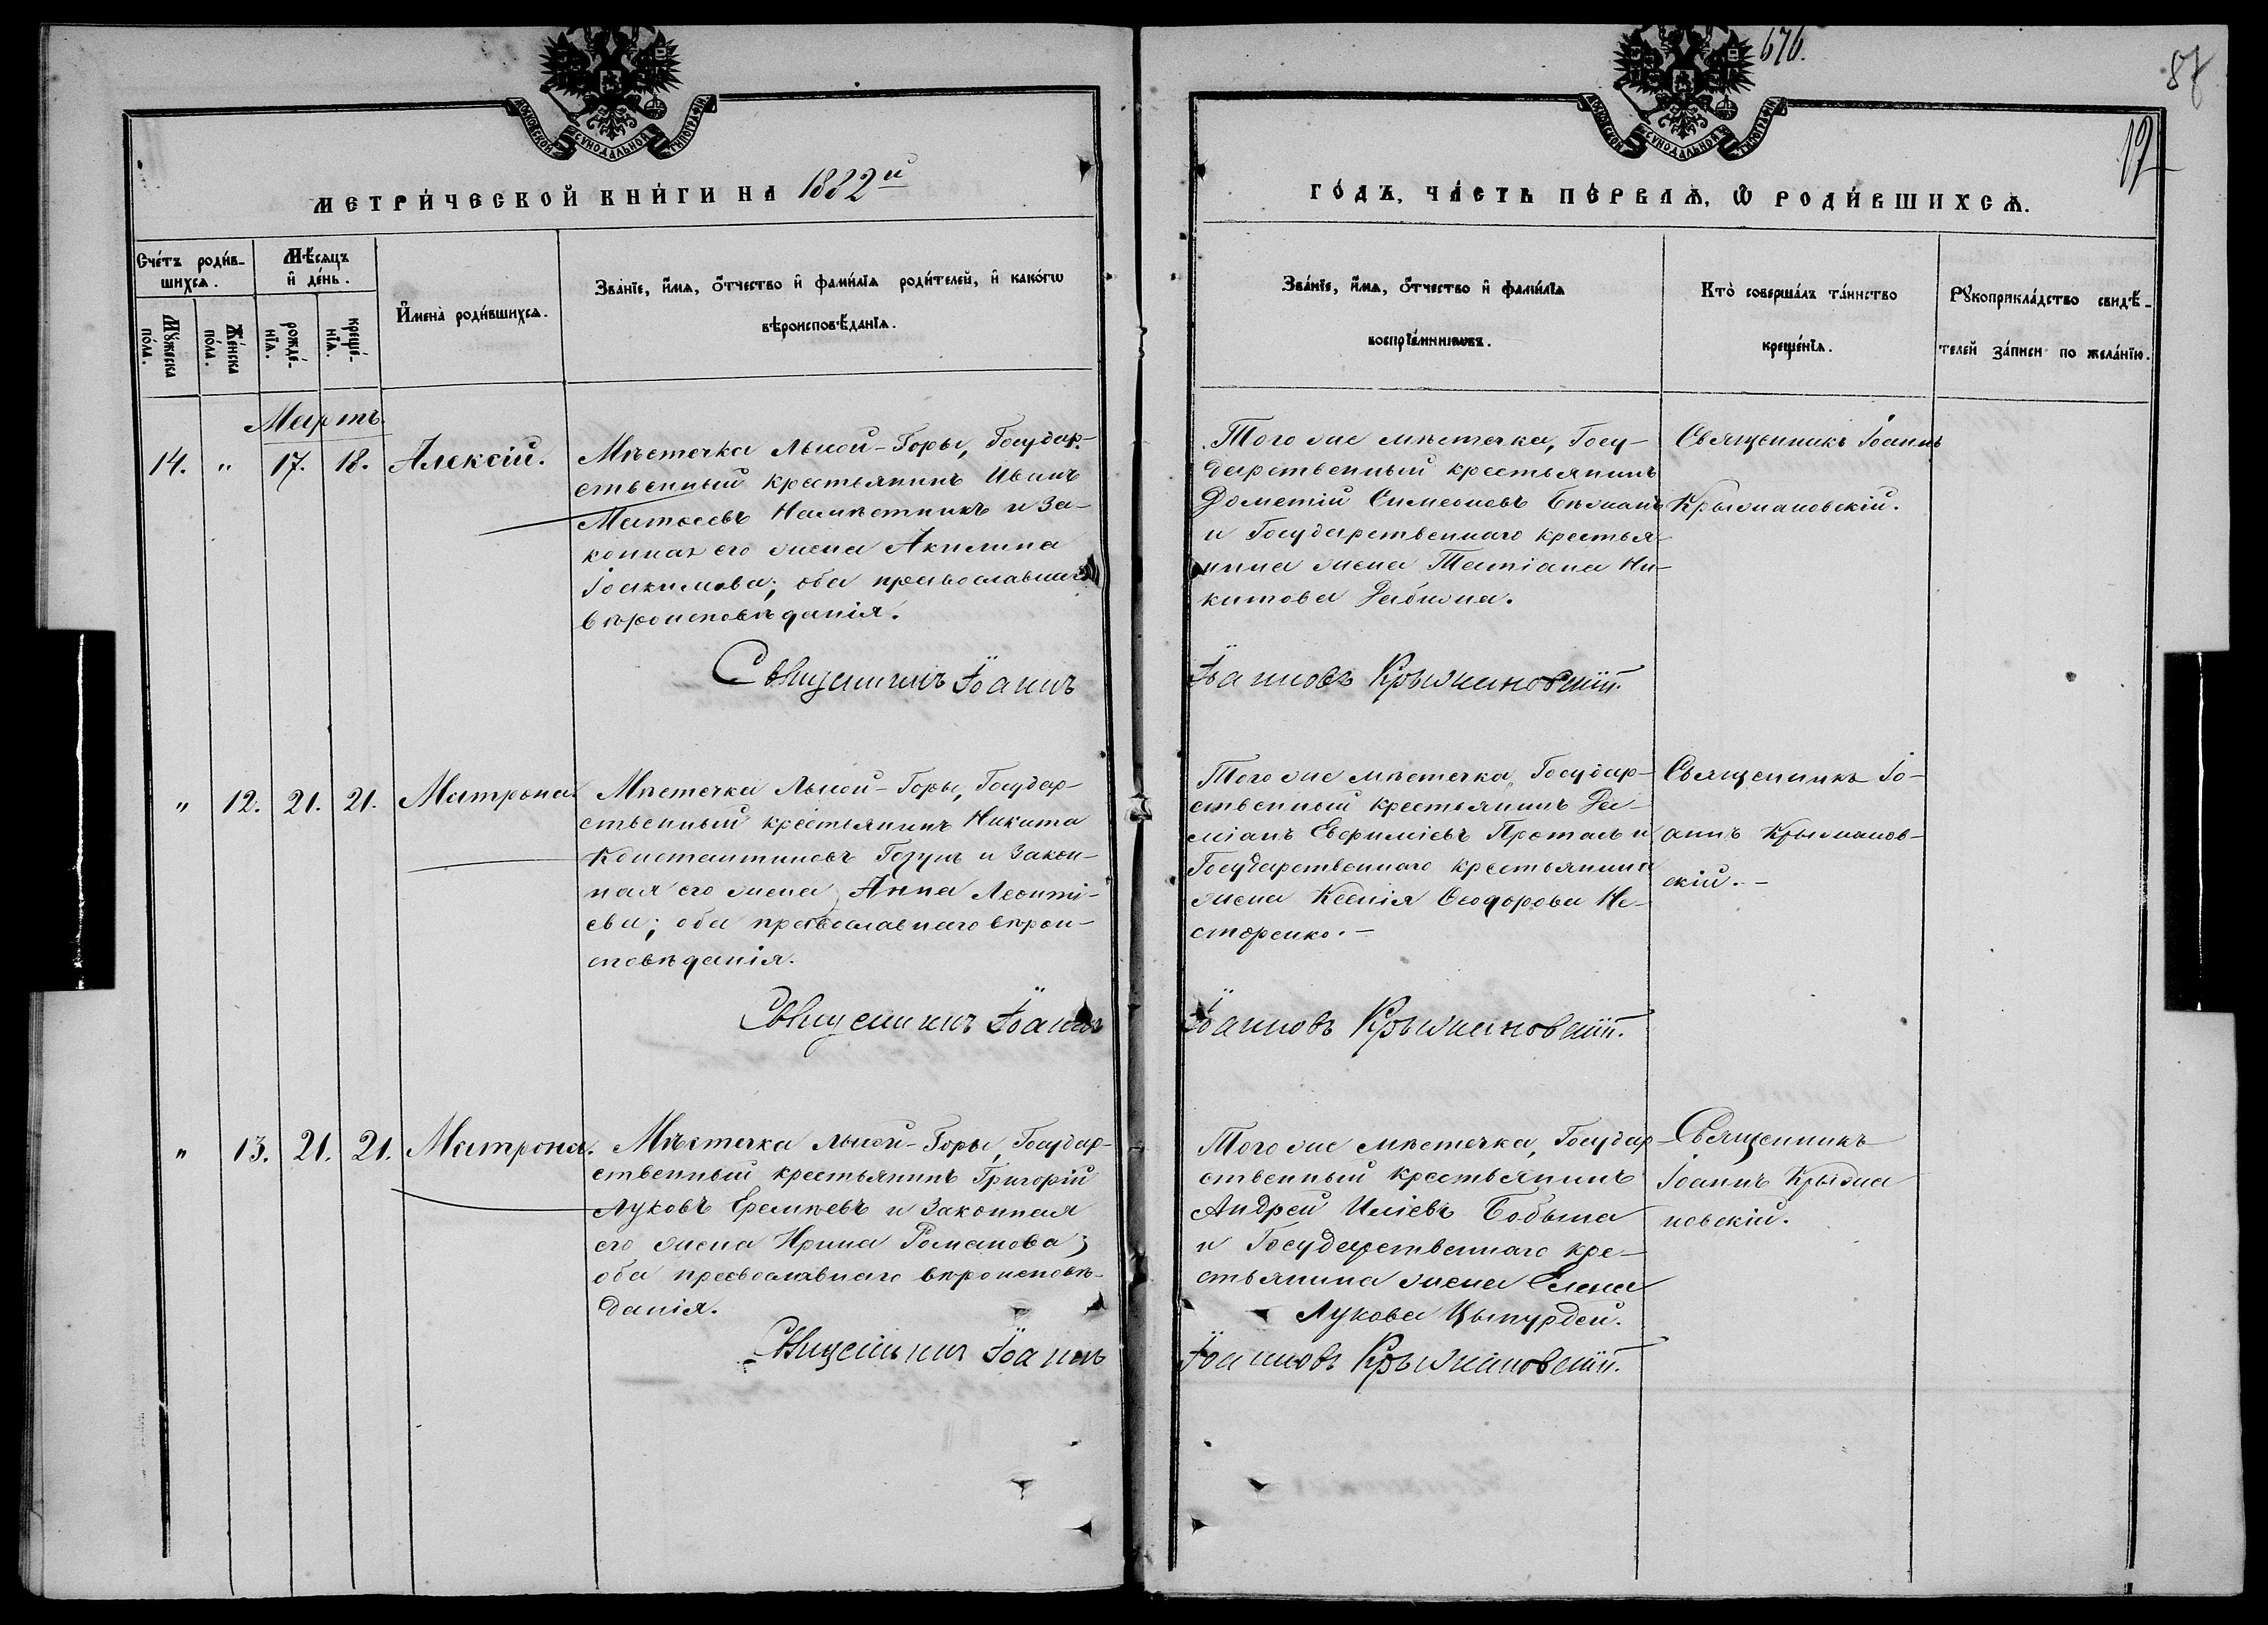 676.
87
12
МОСКОВСКОЙ СѴНОДАЛЬНОЙ ТИПОГРАФІИ
МЕТРИ́ЧЕСКОЙ КНИ́ГИ НА 1882й
Сче́тъ роди́в-
шихсѧ.
Мѣ́сѧцъ
и҆ де́нь.
Мꙋ́жеска
по́ла.
Же́нска
по́ла.
рожде́-
нїѧ.
креще́-
нїѧ.
И҆мена̀ роди́вшихсѧ.
Зва́нїе, и҆́мѧ, ѻ҆́тчество и҆ фами́лїѧ роди́телей, и҆ како́гѡ
вѣроисповѣ́данїѧ.
Мартъ.
14.
"
17.
18.
Алексій.
Мѣстечка Лысой-Горы, Государ-
ственный крестьянинъ Иванъ
Матѳеевъ Намѣстникъ и за-
конная его жена Акилина
Іоакимова; оба православнаго
вѣроисповѣданія.
Священникъ Іоаннъ
"
12.
21.
21.
Матрона.
Мѣстечка Лысой-Горы, Государ-
ственный крестьянинъ Никита
Константиновъ Гезунъ и закон-
ная его жена Анна Леонті-
ева; оба православнаго вѣрои-
сповѣданія.
Священникъ Іоаннъ
"
13.
21.
21.
Матрона.
Мѣстечка Лысой-Горы, Государ-
ственный крестьянинъ Григорій
Луковъ Еремѣевъ и законная
его жена Ирина Романова;
оба православнаго вѣроисповѣ-
данія.
Священникъ Іоаннъ
МОСКОВСКОЙ СѴНОДАЛЬНОЙ ТИПОГРАФІИ
ГО́ДЪ, ЧА́СТЬ ПЕ́РВАѦ, Ѡ҆ РОДИ́ВШИХСѦ.
Зва́нїе, и҆́мѧ, ѻ҆́тчество и҆ фами́лїѧ
воспрїе́мникѡвъ.
Кто̀ соверша́лъ та́инство
креще́нїѧ.
Рꙋкоприкла́дство свидѣ́-
телей за́писи по жела́нїю.
Того же мѣстечка, Госу-
дарственный крестьянинъ
Дометій Симеоновъ Бѣжанъ
и Государственнаго крестья-
нина жена Татіана Ни-
китова Дабижа.
Священникъ Іоаннъ
Крыжановскій.
Іоанновъ Крыжановскій.
Того же мѣстечка, Государ-
ственный крестьянинъ Да-
міанъ Евфиміевъ и
Государственнаго крестьянина
жена Ксенія Ѳеодорова Не-
стеренко.-
Священникъ Іо-
аннъ Крыжанов-
скій.-
Іоанновъ Крыжановскій.
Того же мѣстечка, Государ-
ственный крестьянинъ
Андрей Иліевъ
и Государственнаго кре-
стьянина жена Елена
Лукова Цыпурдей.
Священникъ
Іоаннъ Крыжа
новскій.
Іоанновъ Крыжановскій.